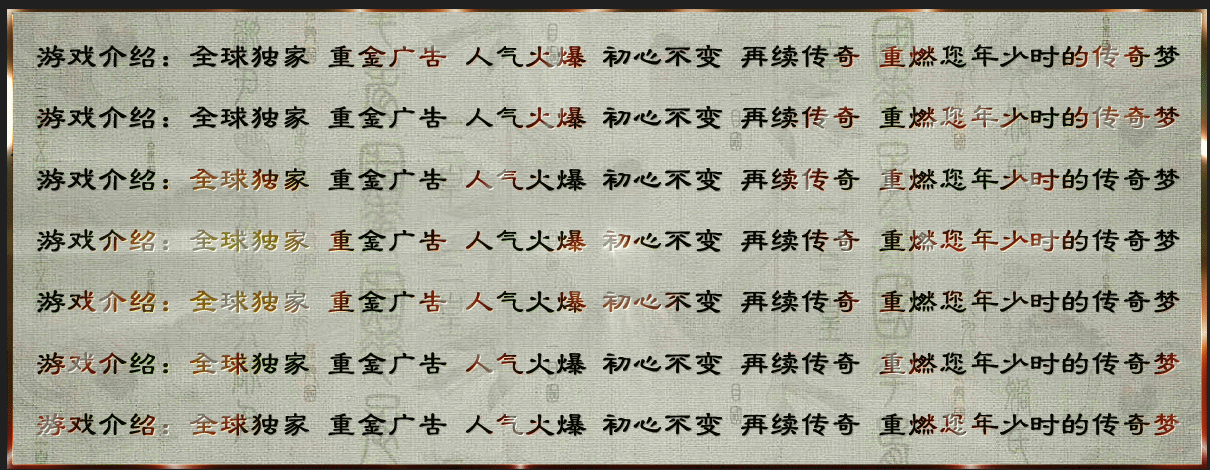 游戏介绍：全球独家 重金广告 人气火爆 初心不变 再续传奇 重燃您年少时的传奇梦
游戏介绍：全球独家 重金广告 人气火爆 初心不变 再续传奇 重燃您年少时的传奇梦
游戏介绍：全球独家 重金广告 人气火爆 初心不变 再续传奇 重燃您年少时的传奇梦
游戏介绍：全球独家 重金广告 人气火爆 初心不变 再续传奇 重燃您年少时的传奇梦
游戏介绍：全球独家 重金广告 人气火爆 初心不变 再续传奇 重燃您年少时的传奇梦
游戏介绍：全球独家 重金广告 人气火爆 初心不变 再续传奇 重燃您年少时的传奇梦
游戏介绍：全球独家 重金广告 人气火爆 初心不变 再续传奇 重燃您年少时的传奇梦